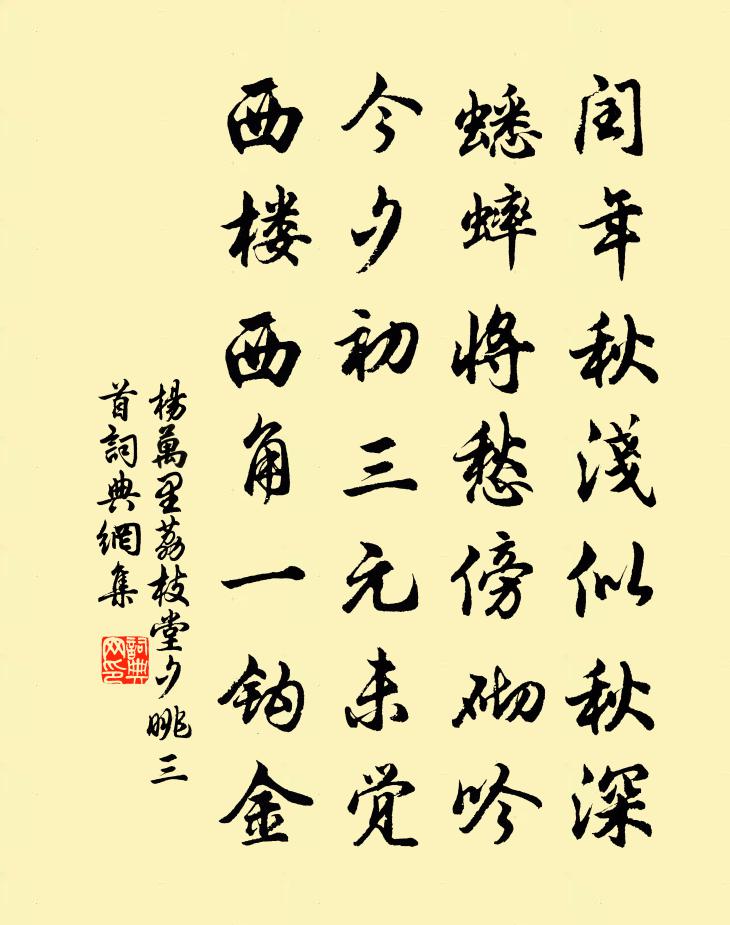 闰年秋淺似秋深
蟋蟀將愁傍砌吟
今夕初三元未觉
西楼西角一钩金
楊萬里荔枝堂夕眺三
首詞典網集
詞典网印